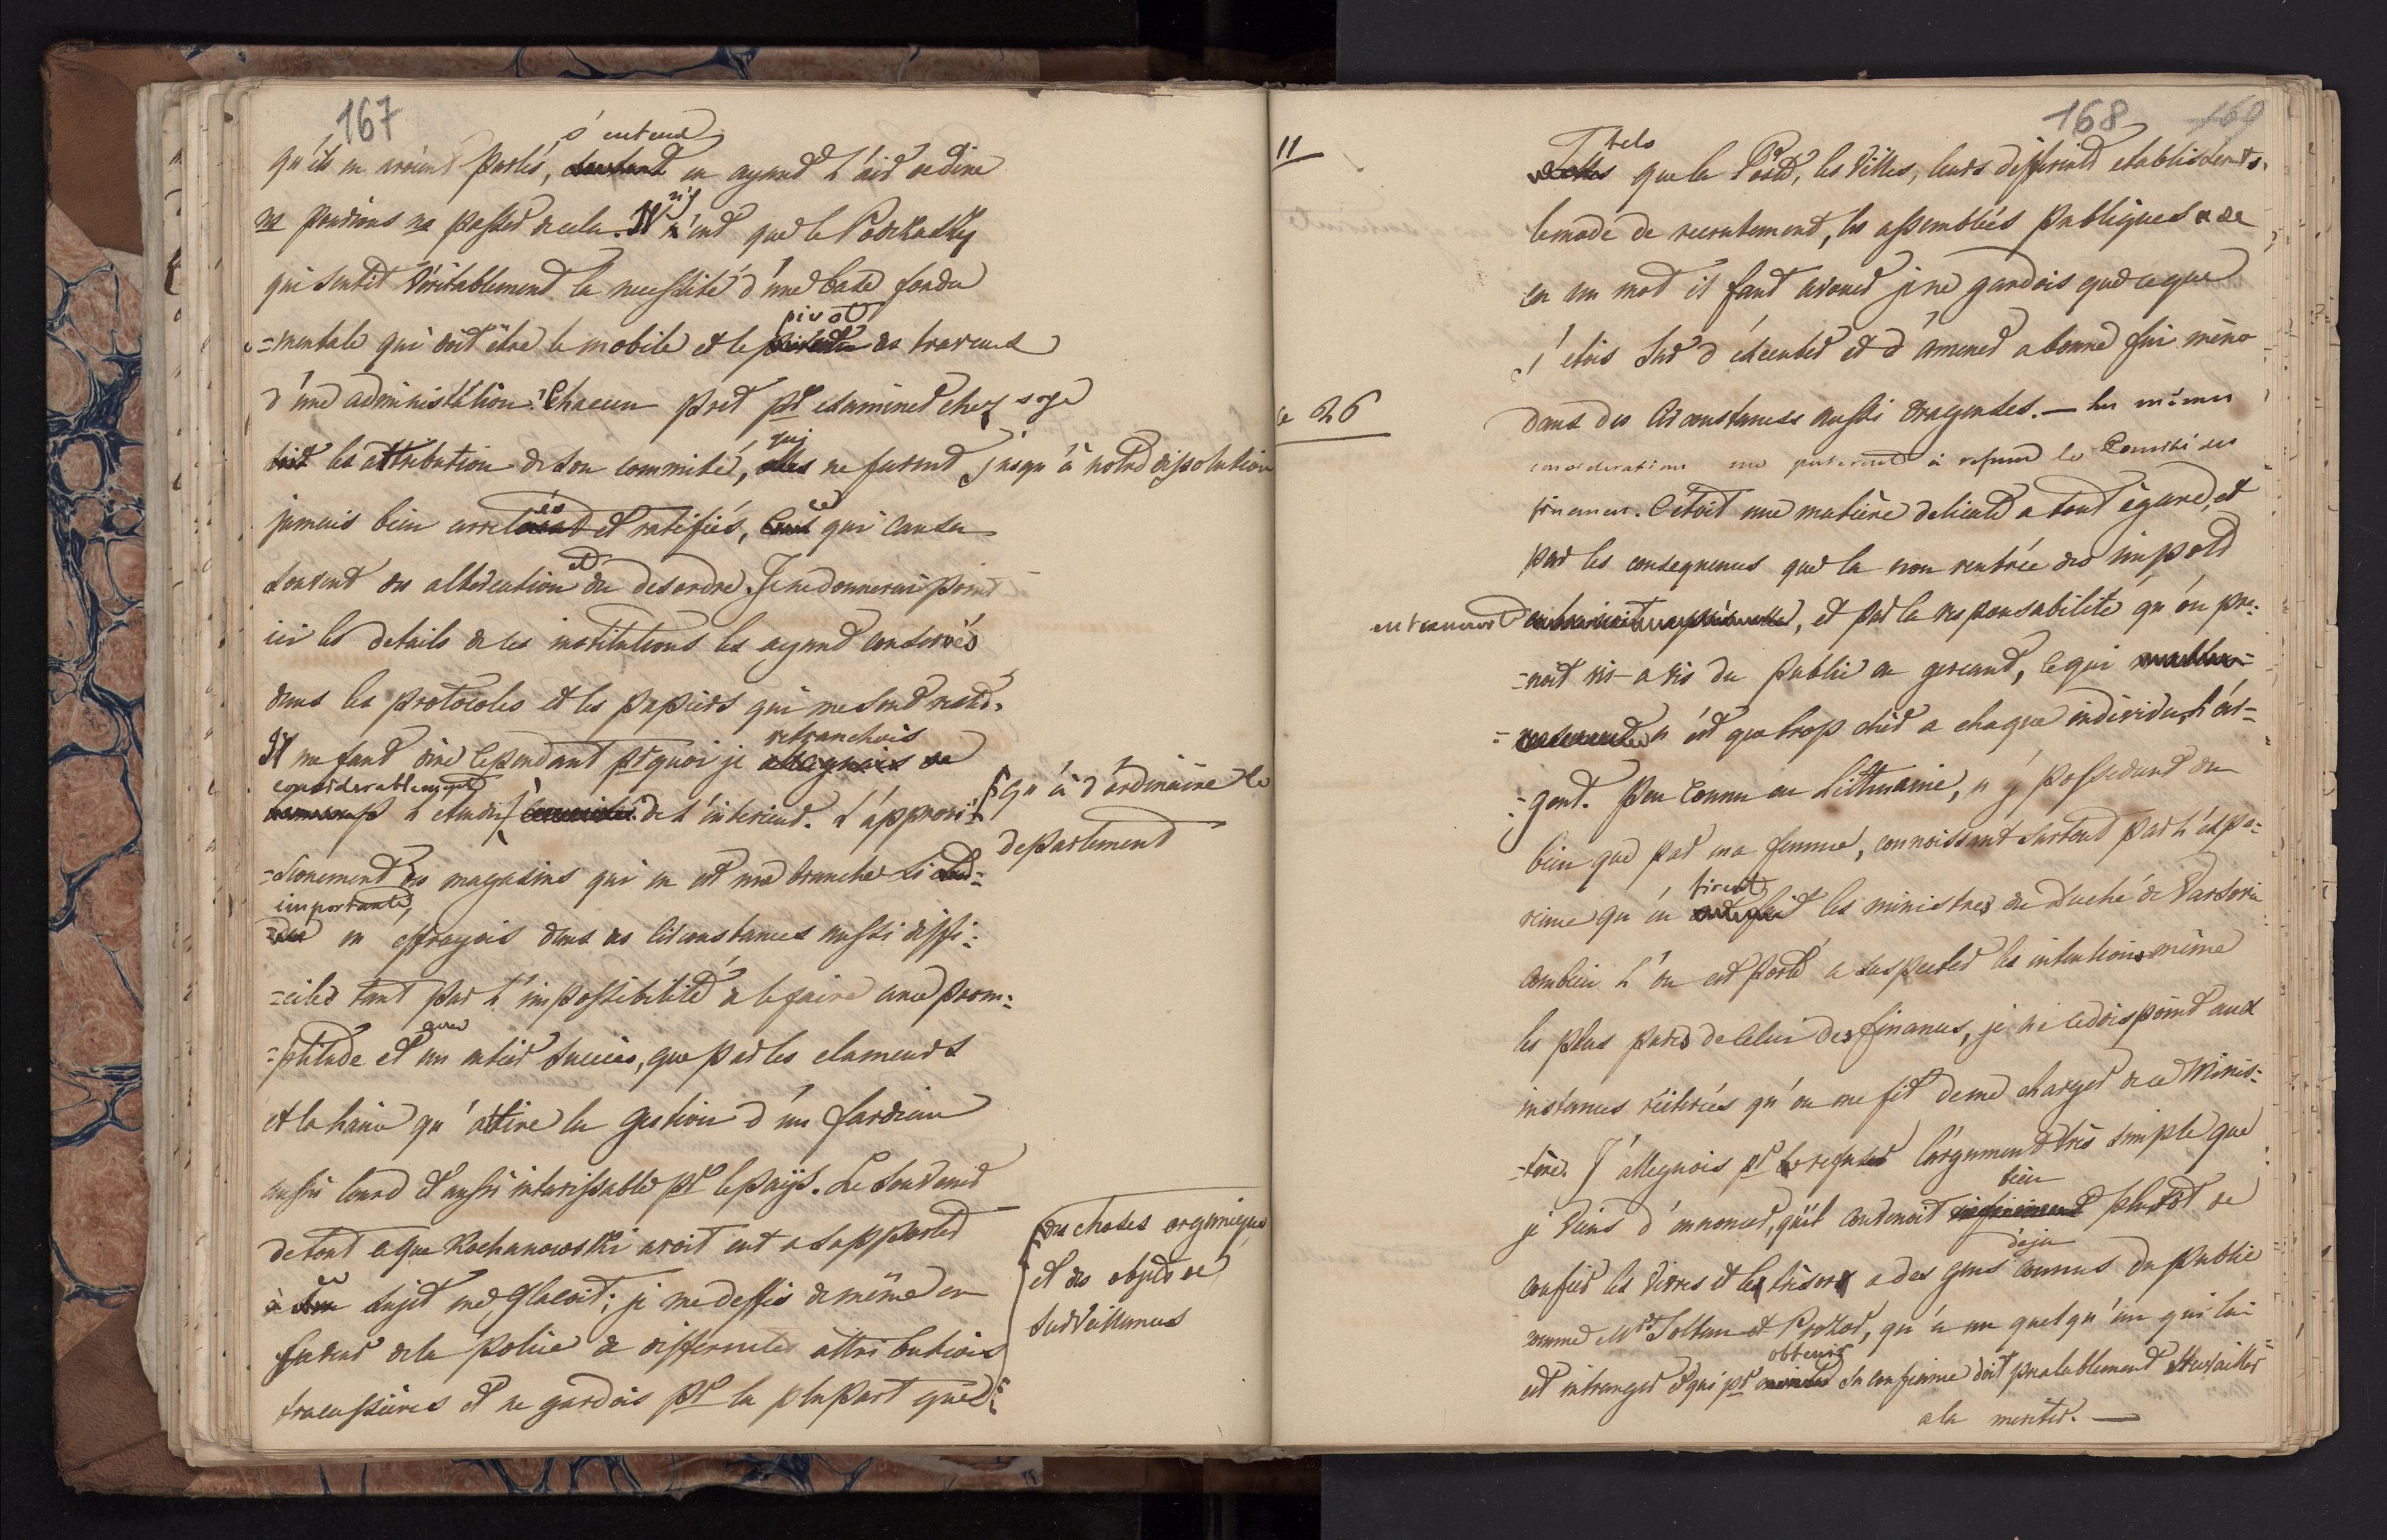 167
s'entend
qu'ils en avoient parlés, en ayant l'air de dire
ne pouvions ns passer de cela. Il n'eut que le
qui sentit véritablement la necessité d'une base fonda
=mentale qui doit être le mobile et le pivot des travaux
d'une administration. Chacun prit pr examiner chez soye
les attribution de son committé, qui ne furent jusqu'à notre dissolution
jamais bien arretés et ratifiés, ce qui causa
souvent des altercation et du desordre. Je ne donnerai point
ici les details de ces institutions les ayant conservés
dans les protocoles et les papiers qui me sont restés.
Il me faut dire cependant pr quoi je retranchois de
considerablement l'étendue qu'à d'ordinaire le
departement
de l'interieur. L'approvi=
=sionement des magasins qui en est une branche si
importante, m'effrayois dans des circonstances aussi diffi=
=ciles tant par l'impossibilité de le faire avec prom=
=ptitude et avec un entier succès, que par les clameurs
et la haine qu'attire la gestion d'un fardeau
aussi lourd et aussi intarissable pr le païs. Le souvenir
de tout ce que Kochanowski avoit eut a supporter
à ce sujet me glaçoit; je me deffis de même en
faveur de la police de differentes attributions
tracassières et ne gardois pr la plupart que
des choses organiques
et des objets de
surveillances
168 169
11
Tels
que la Poste, les Villes, leurs differents etablissements,
le mode de recrutement, les assemblées publiques &
en un mot il faut avouer je ne gardois que ce que
j'étois sur d'executer et d'amener a bonne fin même
dans des circonstances aussi urgentes. — les mêmes
le 26
considerations me porterent à refuser le Comité des
finances. C'étoit une matière delicate a tout égard, et
par les consequences que la non rentrée des impots
entraineroit, et par la responsabilité qu'on pre=
=noit vis-a-vis du public en gerant, ce qui
n'est que trop cher a chaque individu, l'ar=
=gent. Peu connu en Lithuanie, n'y possedant du
bien que par ma femme, connoissant surtout par l'expe=
rience qu'en firent les ministres du Duché de Varsovie
combien l'on est porté a suspecter les intentions même
les plus pures de celui des finances, je ne cedois point aux
instances réiterées qu'on me fit de me charger de ce Minis=
=tère. J'alleguois pr le refuser l'argument très simple que
je viens d'annoncer, qu'il convenoit bien plutôt de
confier les vivres et les trésors a des gens déja connus du public
comme Mrs Soltan et Prozor, qu'a un quelqu'un qui lui
est etranger et qui pr obtenir sa confiance doit prealablement travailler
a la meriter. —